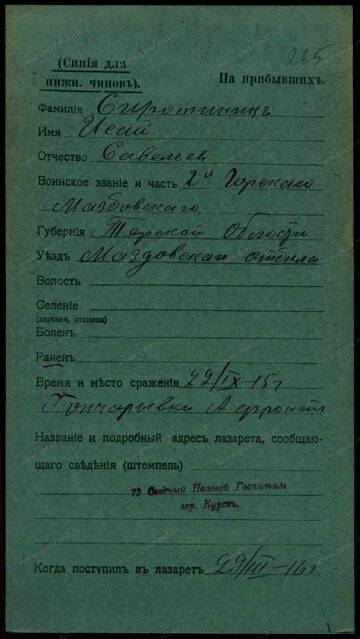 265
(Синія для
нижн. чиновъ).
На прибывшихъ.
Фамилія Сиротиницъ
Имя Исай
Отчество Савельев
Воинское званіе и часть 2й Горско
Маздовскаго
Губернія Терской Области
Уѣздъ Маздовскаго отдѣла
Волость
Селеніе
(деревня, станица)
Боленъ
Раненъ
Время и мѣсто сраженія 22/IX-15г
Гончаривка А фронт
Названіе и подробный адресъ лазарета, сообщаю-
щаго свѣдѣнія (штемпель)
73 Сводный Полевой Госпиталь
гор. Курскъ.
Когда поступилъ въ лазаретъ 29/III-16г.